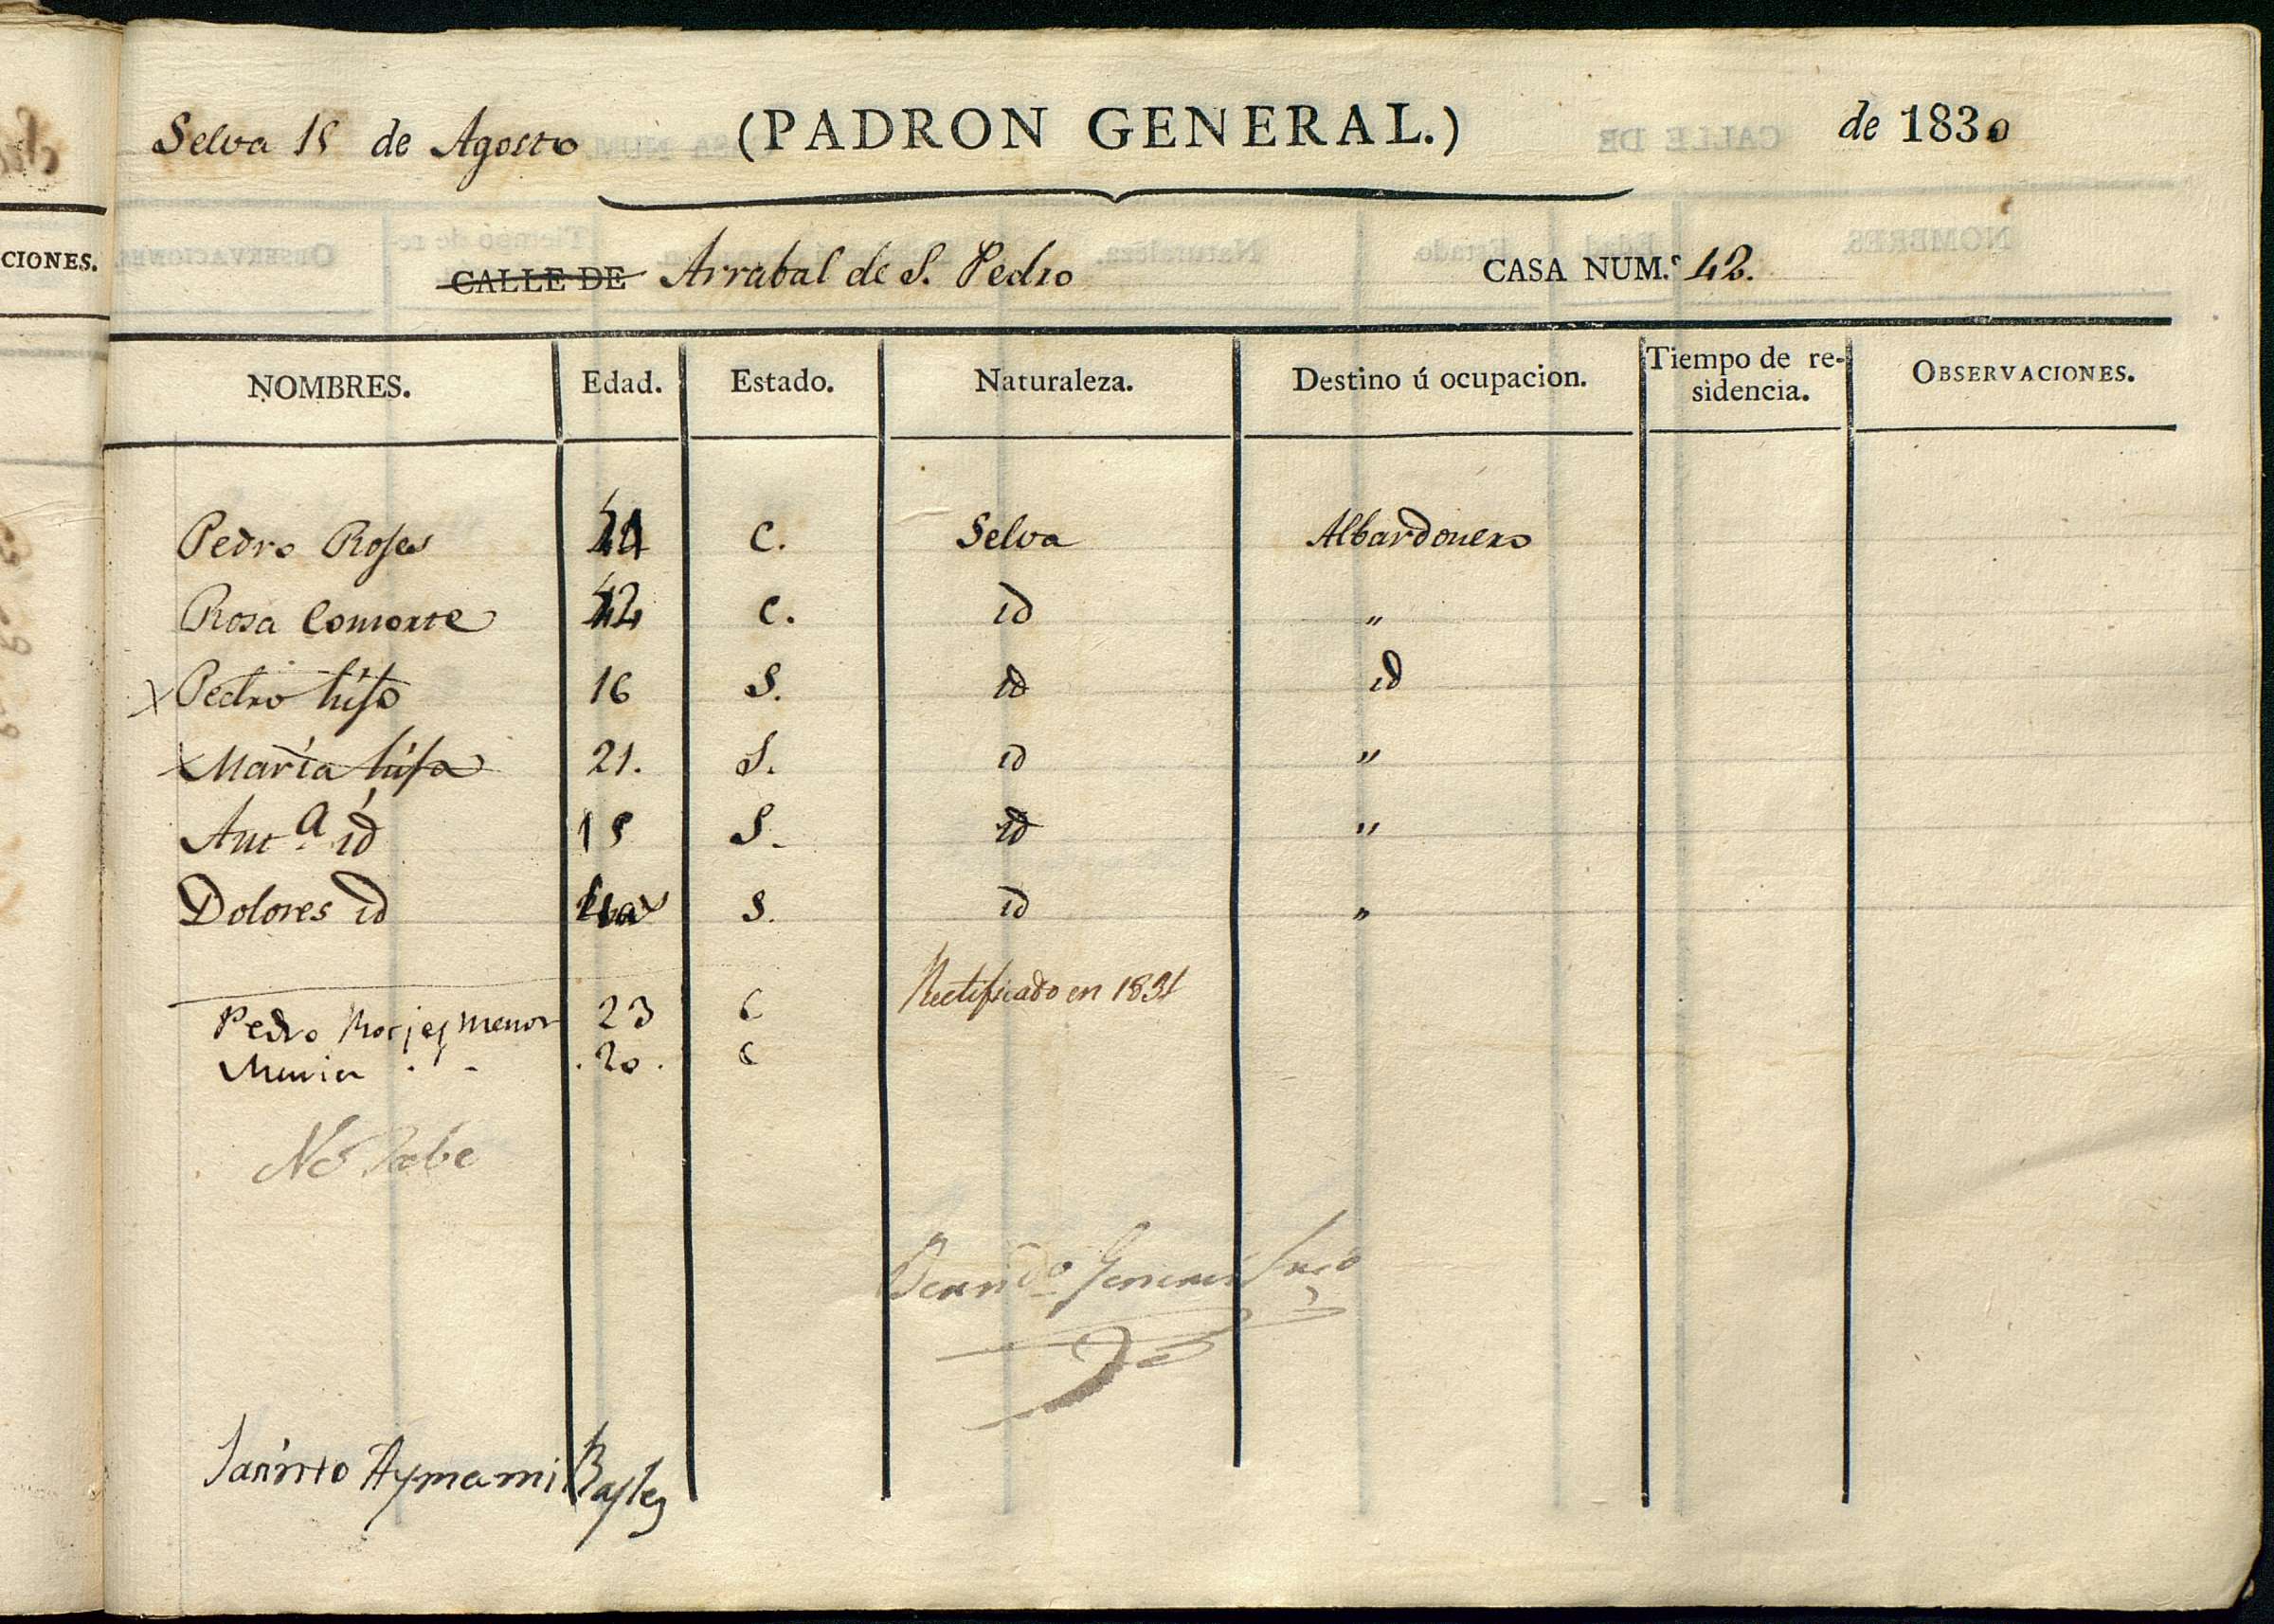 CIONES.
Selva 15 de Agosto (PADRON GENERAL.) de 1830
CALLE DE Arrabal de S. Pedro CASA NUM.º 42.
NOMBRES. Edad. Estado. Naturaleza. Destino ú ocupacion. Tiempo de re-
sidencia. OBSERVACIONES.
Pedro Roses C. Selva Albardonero
Rosa Consorte 42 C. id "
Pedro hijo 16 S. id id
María hija 21. S. id "
Antª id 15 S. id "
Dolores id S. id "
Rectificado en 1831
Pedro menor 23 C
Maria 20. C
No Sabe
Jacinto Aymamí Bayle